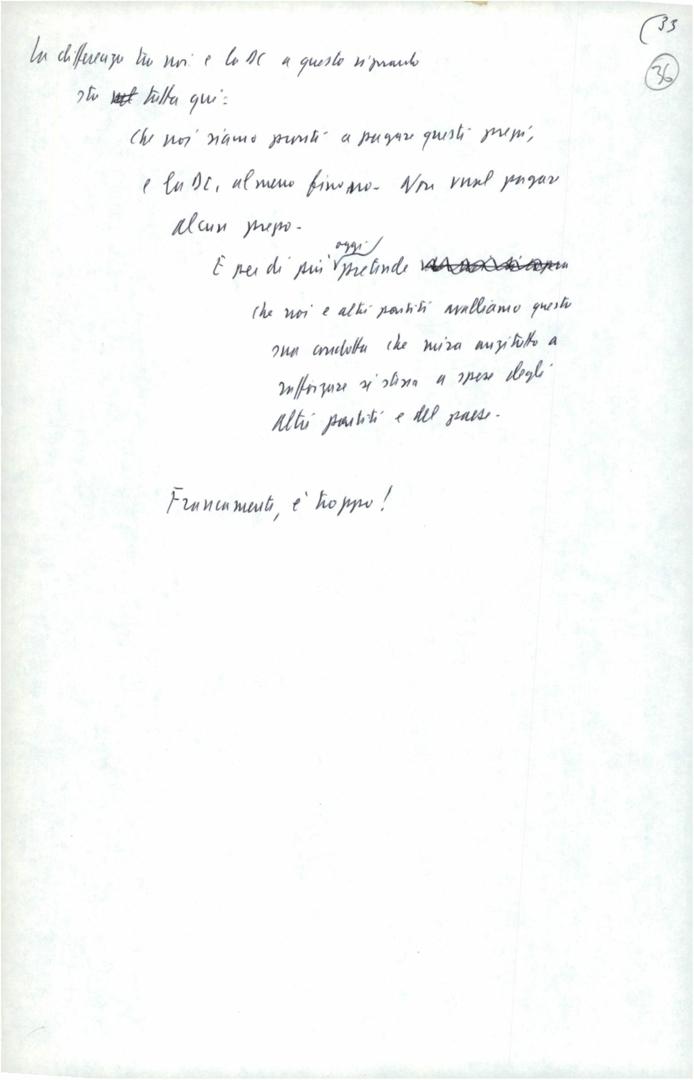 (33
36
La differenza tra noi e la DC a questo riguardo
sta tutta qui:
che noi siamo pronti a pagare questi prezzi,
e la DC, almeno finora. Non vuol pagare
alcun prezzo.
E per di più oggi pretende
che noi e altri partiti avalliamo questa
sua condotta che mira anzitutto a
rafforzare se stessa a spese degli
altri partiti e del paese.
Francamente, è troppo!